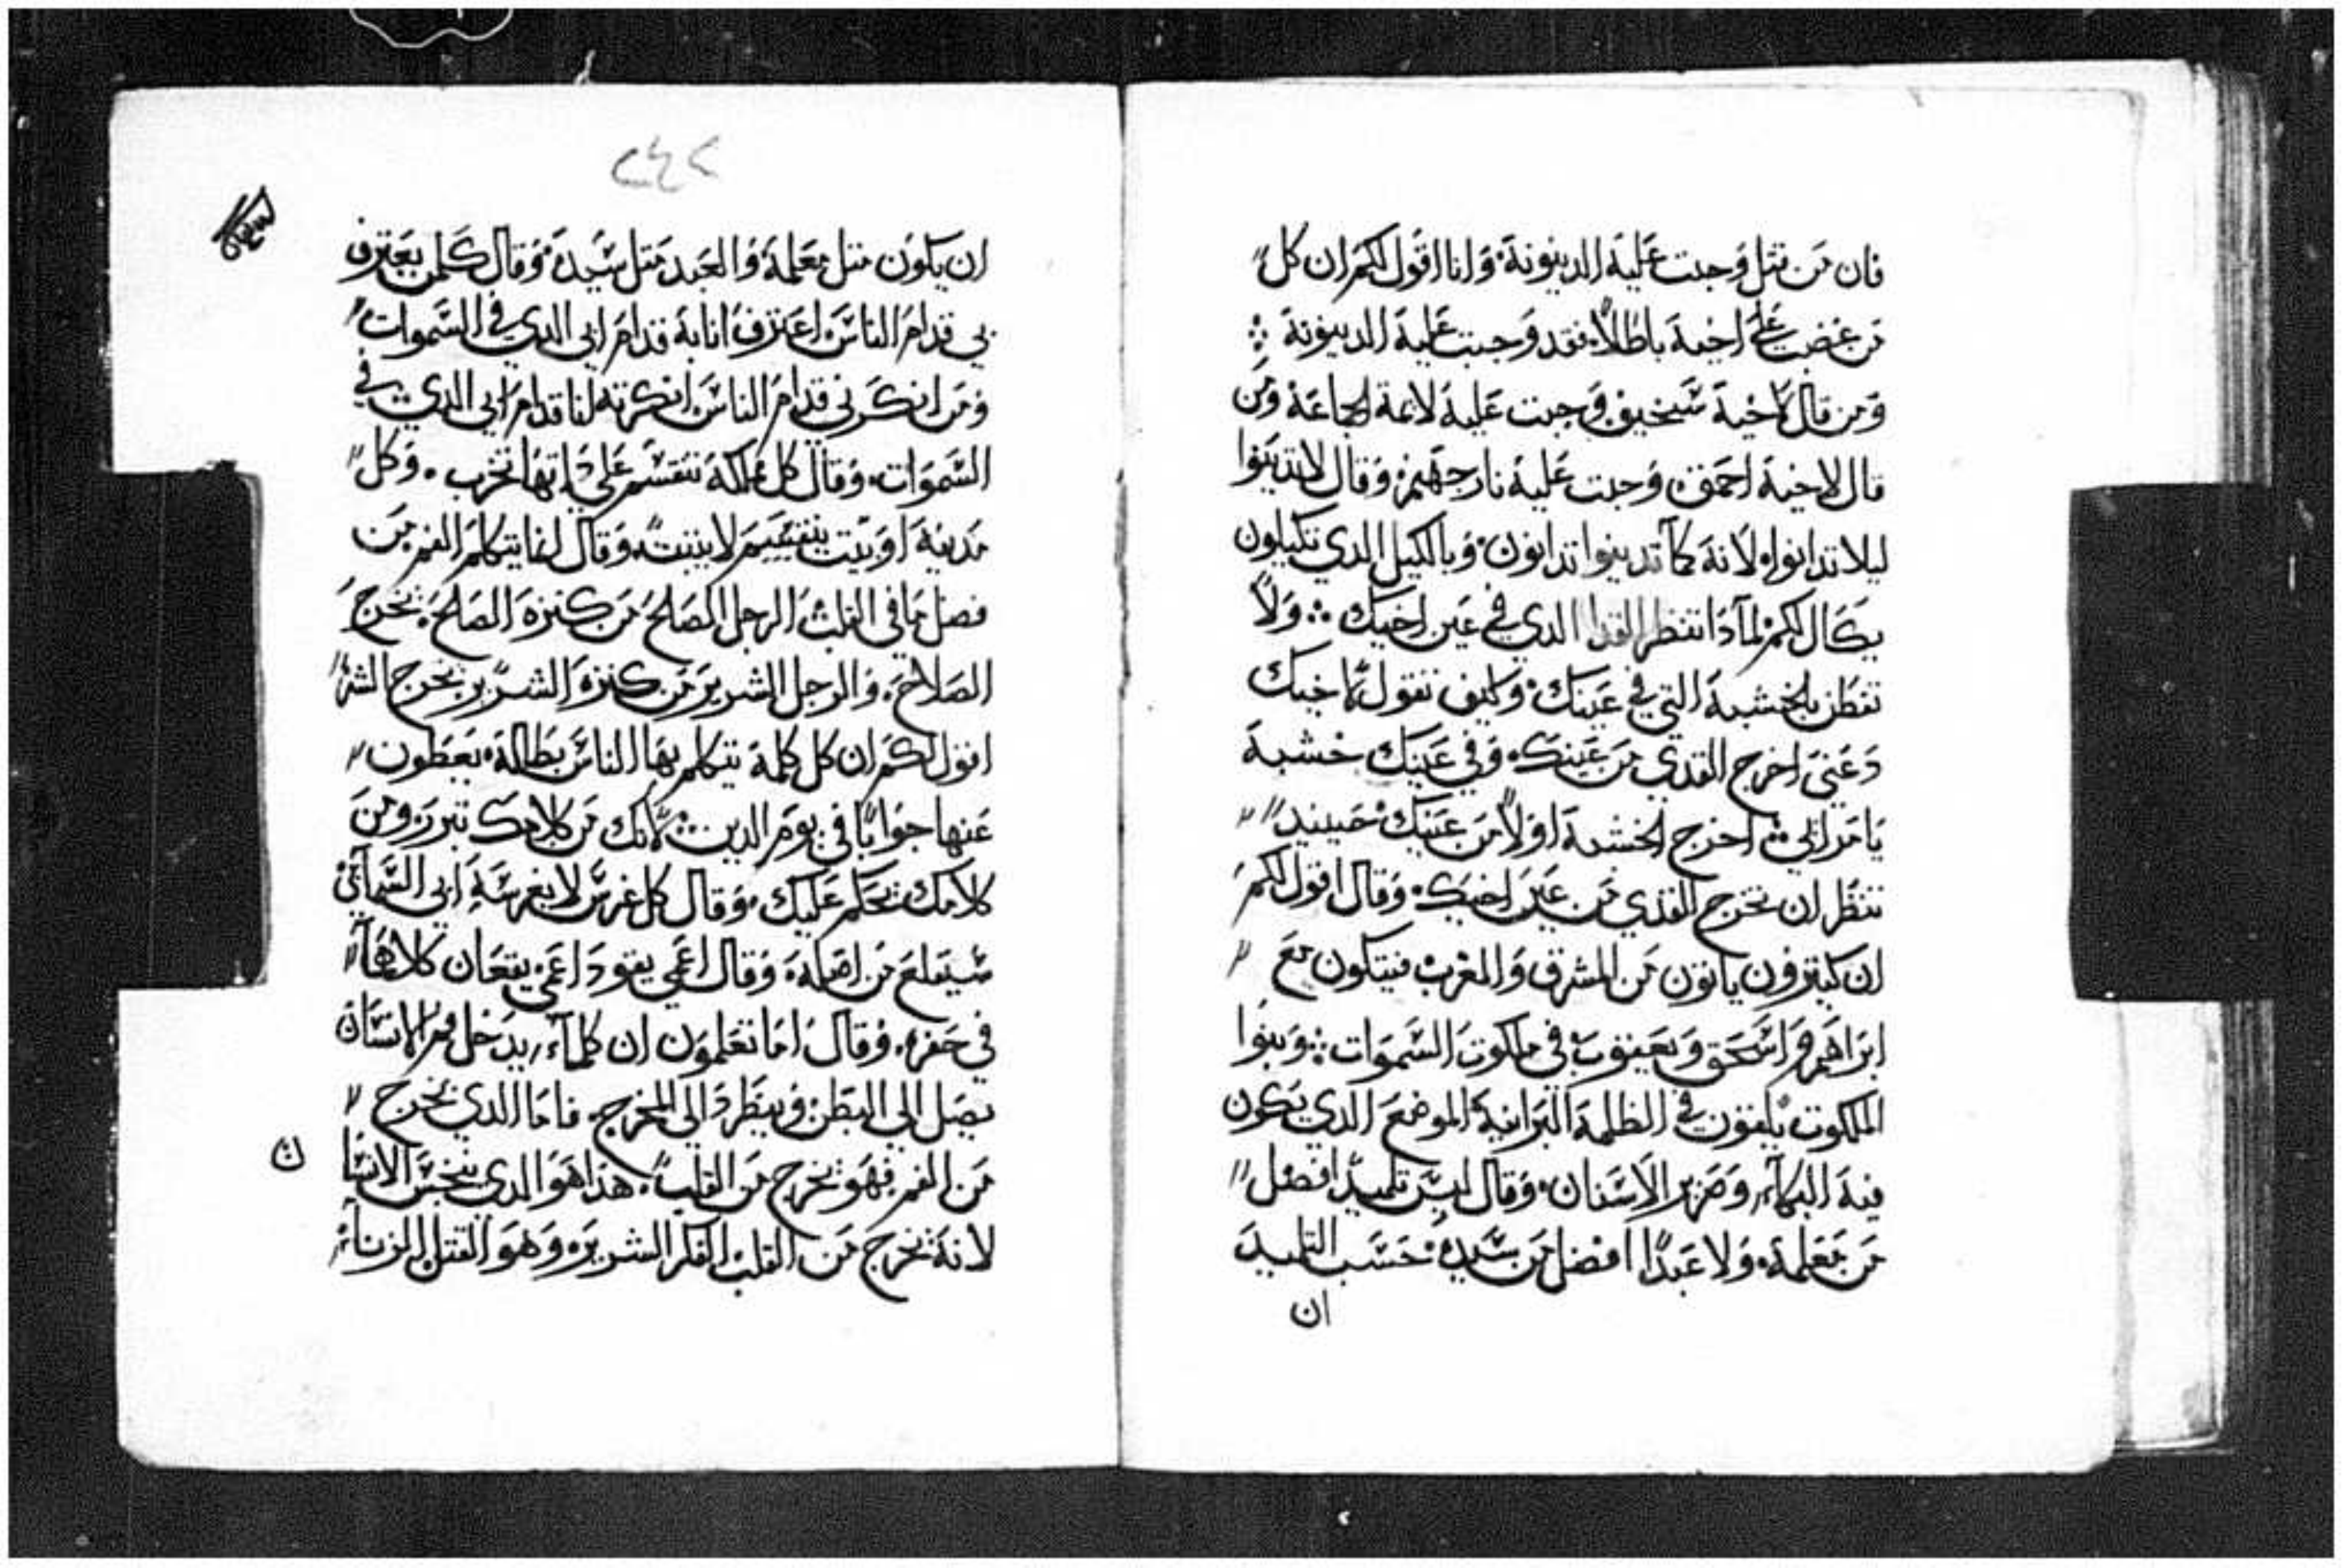 فان من قتل وجبت عليه الدينونة. وانا اقول لكم ان كل
من غضب على اخيه باطلاً. فقد وجبت عليه الدينونة ؞
ومن قال لاخيه سخيف وجبت عليه لائمة الجماعة ومن
قال لاخيه احمق. وجبت عليه نار جهنم. وقال لا تدينوا
ليلا تدانوا. لانه كما تدينوا تدانون. وبالكيل الدي تكيلون
يكال لكم. لمادا تنظر القدا الدي في عين اخيك ؞ ولا
تفطن بالخشبة التي في عينك. وكيف تقول لاخيك
دعني اخرج القدي من عينك. وفي عينك خشبة
يا مرائي. اخرج الخشبة اولاً من عينك. حينيد
تنظر ان تخرج القدي من عين اخيك. وقال اقول لكم
ان كتيرون ياتون من المشرق والمغرب فيتكون مع
ابراهيم واسحق ويعقوب في ملكوت السموات ؞ وبنوا
الملكوت يلقون في الظلمة البرانية الموضع الدي يكون
فيه البكاء وصرير الاسنان. وقال ليس تلميد افضل
من معلمه. ولا عبدًا افضل من سيده. حسب التلميد
ان
٢٤٢
ان يكون متل معلمه والعبد متل سيده. وقال كلمن يعترف
بي قدام الناس اعترف انا به قدام ابي الدي في السموات
ومن انكرني قدام الناس انكرته انا قدام ابي الدي في
السموات. وقال كل مملكة تنقسم على داتها تخرب. وكل
مدينة او بيت ينقسم لا يتبت. وقال انما يتكلم الفم من
فضل ما في القلب. الرجل الصالح من كنزه الصالح. يخرج
الصلاح. والرجل الشرير من كنزه الشرير يخرج الشر
اقول لكم ان كل كلمة يتكلم بها الناس بطالة. يعطون
عنها جوابًا في يوم الدين ؞ لانك من كلامك تبرر. ومن
كلامك يحكم عليك. وقال كل غرس لا يغرسه ابي السمائي
سيقلع من اصله. وقال اعمي يقود اعمي يقعان كلاهما
في حفره. وقال اما تعلمون ان كلماء يدخل فم الانسان
يصل الي البطن وينطرد الي المخرج. فاما الدي يخرج
من الفم فهو يخرج من القلب. هدا هو الدي ينجس الانسا
ن
لانه يخرج من القلب الفكر الشرير. وهو القتل الزناء